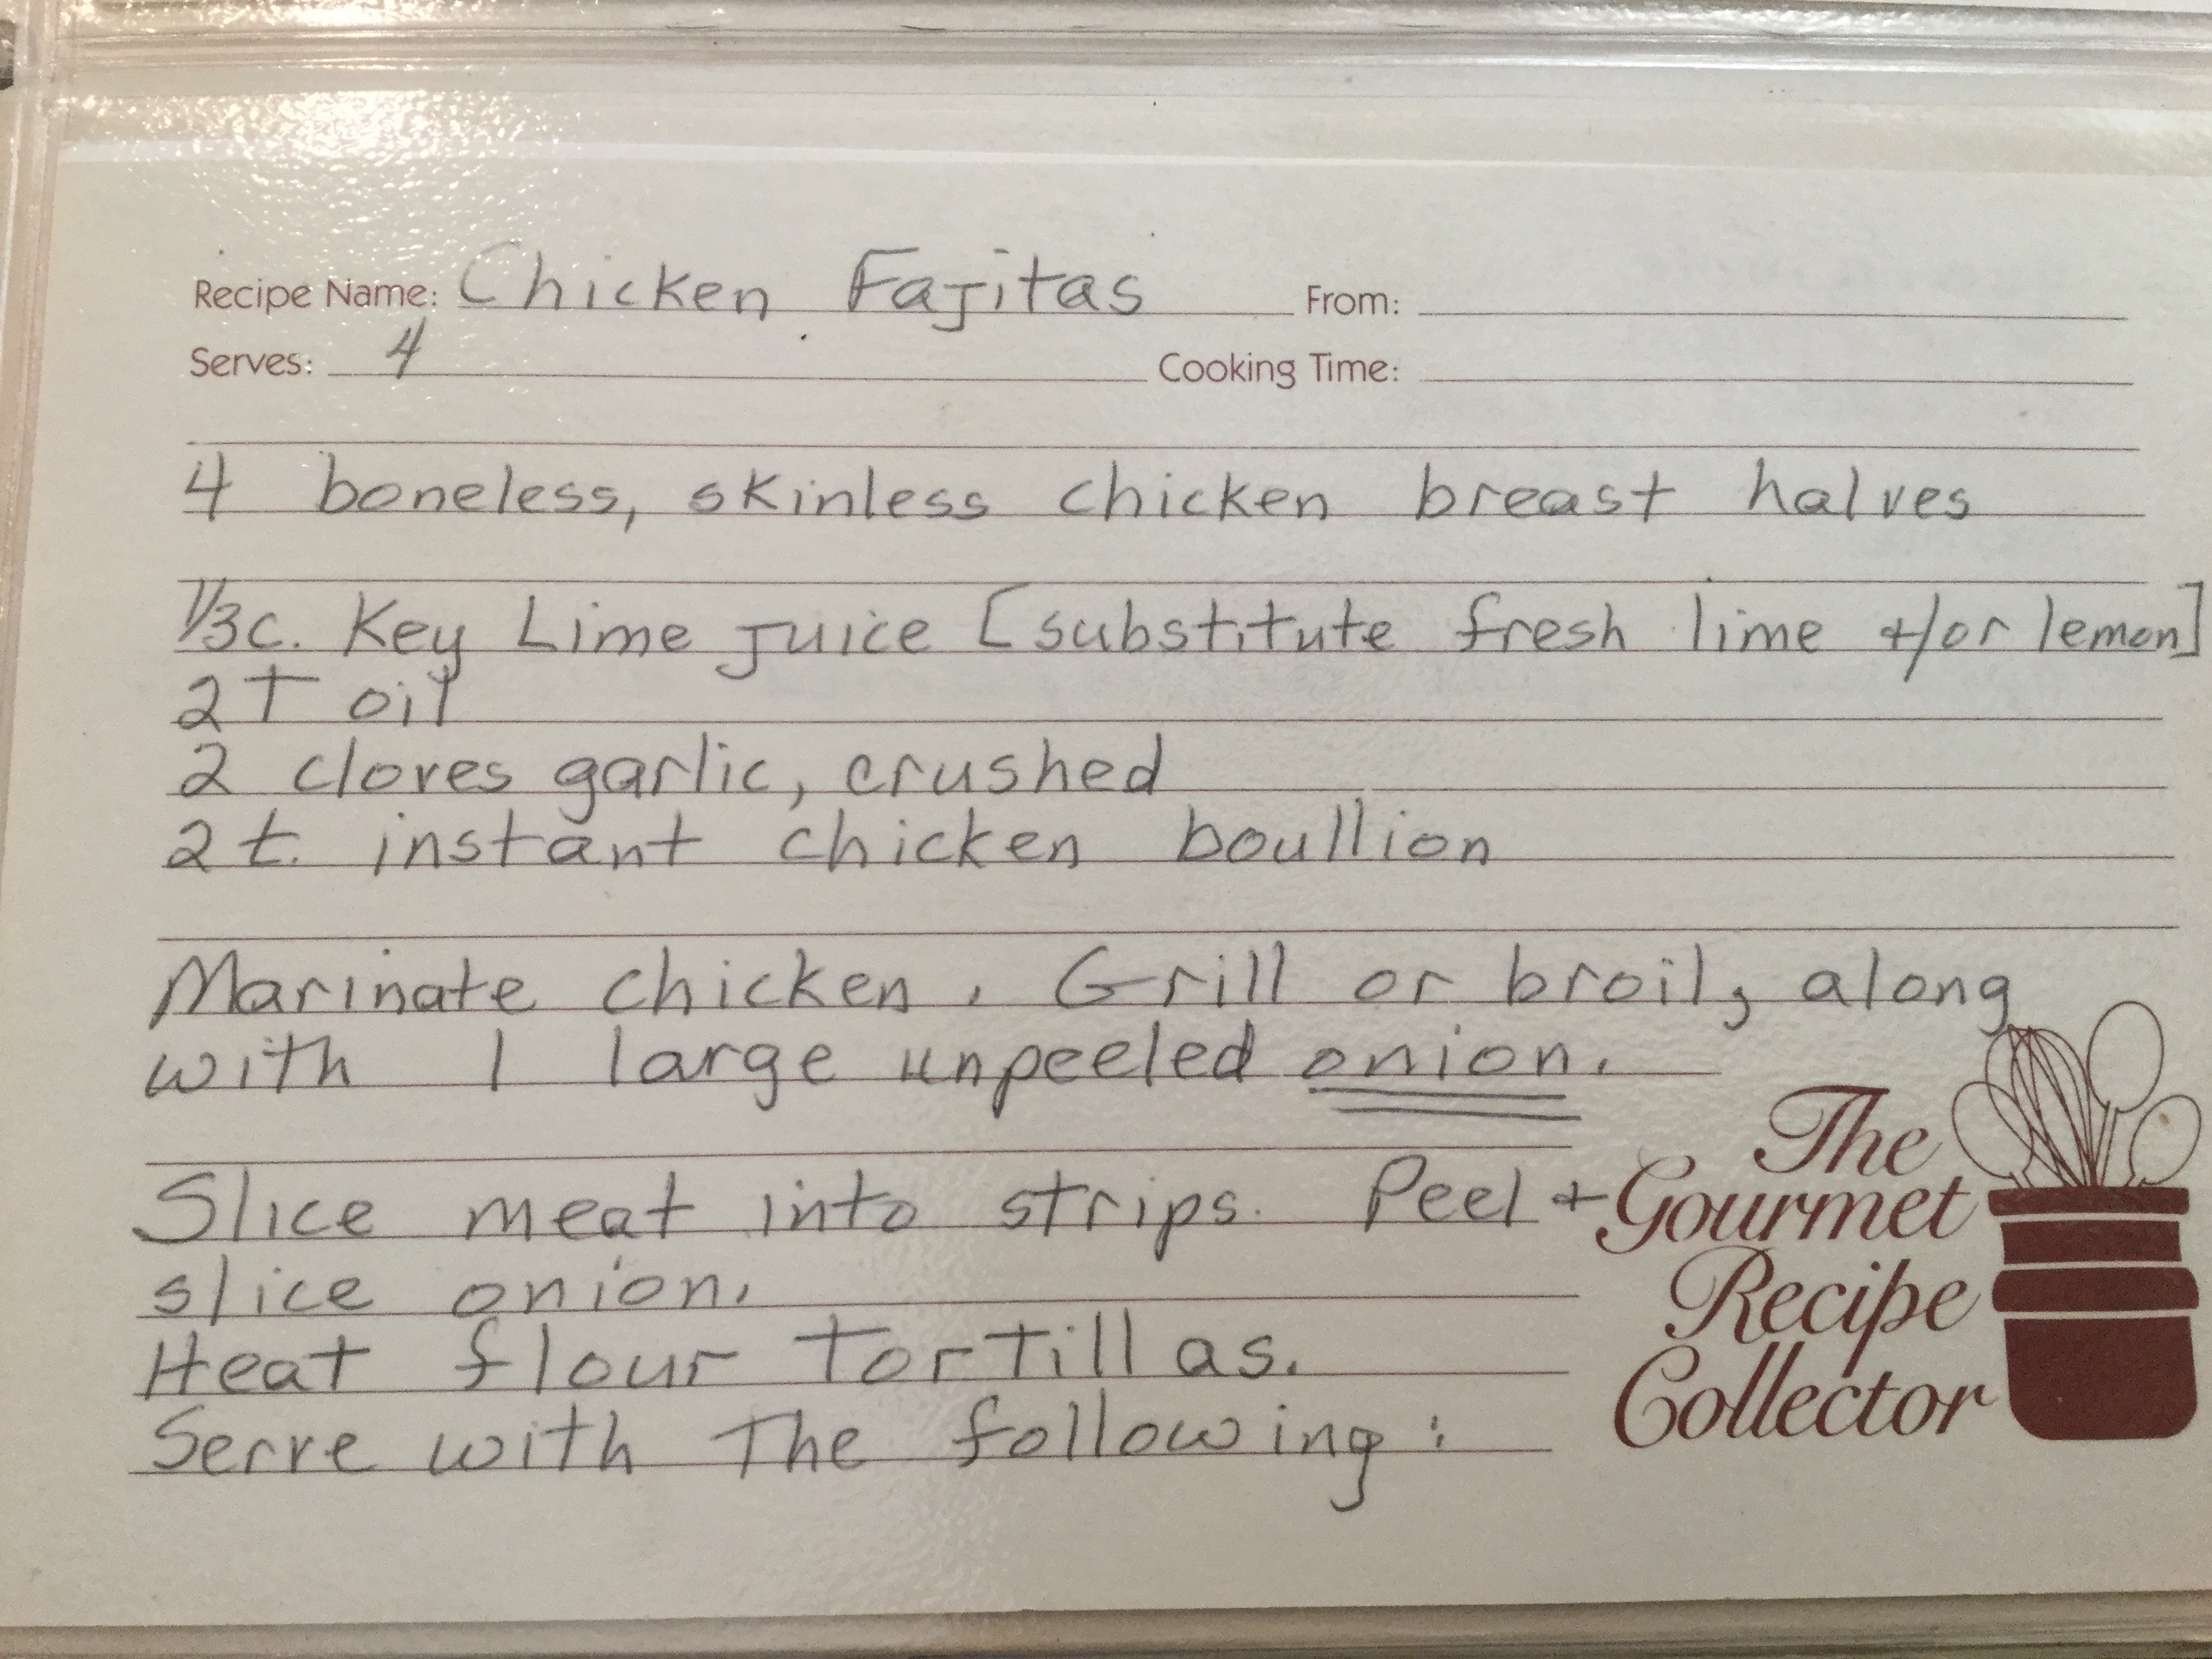 Recipe Name: Chicken Fajitas From:
Serves: 4 Cooking Time:
4 boneless, skinless chicken breast halves
1/3 c. Key Lime juice [substitute fresh lime +/or lemon]
2T oil
2 cloves garlic, crushed
2 t. instant chicken boullion
Marinate chicken. Grill or broil, along
with 1 large unpeeled onion.
Slice meat into strips. Peel +
slice onion.
Heat flour Tortillas.
Serve with The following:
The
Gourmet
Recipe
Collector